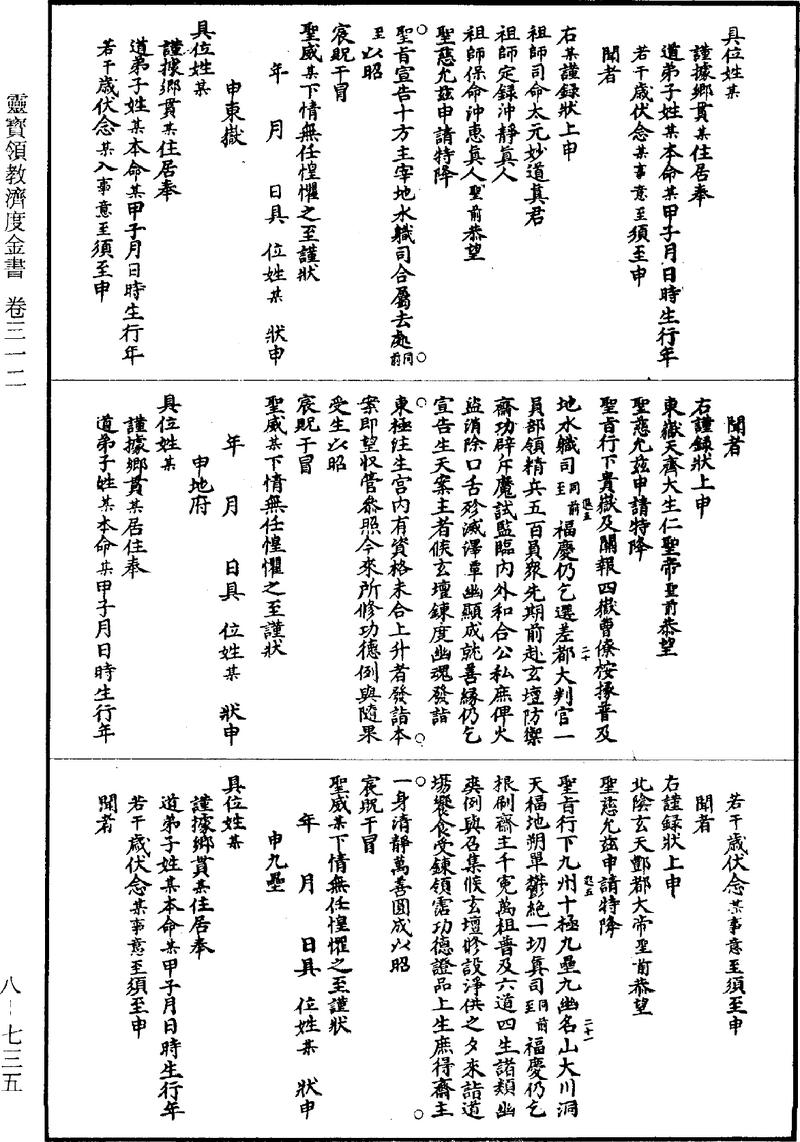 靈寶領教濟度金書　卷三一二
八－七三五
具位姓某
謹據鄉貫某住居奉
道弟子姓某本命某甲子月日時生行年
若干歲伏念某事意至須至申
聞者
右某謹録狀上申
祖師司命太元妙道真君
祖師定録沖靜真人
祖師保命沖惠真人聖前恭望
聖慈允兹申請特降
聖旨宣告十方主宰地水軄司合屬去處同前
至以昭
宸貺干冒
聖威某下情無任惶懼之至謹狀
年　月　日具　位姓某　狀申
申東嶽
具位姓某
謹據鄉貫某住居奉
道弟子姓某本命某甲子月日時生行年
若干歲伏念某入事意至須至申
聞者
右謹録狀上申
東嶽天齊大生仁聖帝聖前恭望
聖慈允兹申請特降
聖旨行下貴嶽及關報四嶽曹僚桉掾普及
地水軄司至同前福慶仍乞選差都大判官一
員部領精兵五百員衆先期前赴玄壇防禦
齋功辟斥魔試監臨內外和合公私庶俾火
盜消除口舌殄滅澤覃幽顯成就善緣仍乞
宣告生天案主者候玄壇鍊度幽魂發詣
東極往生宮內有資格未合上升者發詣本
案即望收管參照今來所修功德例與隨果
受生以昭
宸貺干冒
聖威某下情無任惶懼之至謹狀
年　月　日具　位姓某　狀申
申地府
具位姓某
謹據鄉貫某居住奉
道弟子姓某本命某甲子月日時生行年
若干歲伏念某事意至須至申
聞者
右謹録狀上申
北陰玄天酆都大帝聖前恭望
聖慈允兹申請特降
聖旨行下九州十極九壘九幽名山大川洞
天福地朔單鬱絶一切真司至同前福慶仍乞
根刷齋主千冤萬祖普及六道四生諸類幽
爽例與召集候玄壇修設淨供之夕來詣道
場饗食受鍊領霑功德證品上生庶得齋主
一身清靜萬善圓成以昭
宸貺干冒
聖威某下情無任惶懼之至謹狀
年　月　日具　位姓某　狀申
申九壘
具位姓某
謹據鄉貫某住居奉
道弟子姓某本命某甲子月日時生行年
若干歲伏念某事意至須至申
聞者